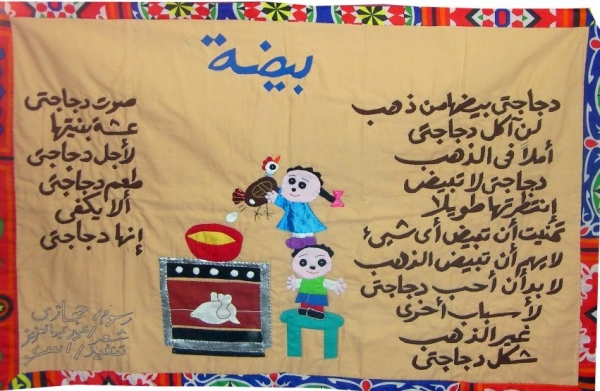 بيضة
دجاجتى بيضها من ذهب
لن آكل دجاجتى
أملاً فى الذهب
دجاجتى لا تبيض
إنتظرتها طويلا
تمنيت أن تبيض أى شيئ
لا يهم أن تبيض الذهب
لا بد أن أحب دجاجتى
لأسباب أخرى
غير الذهب
شكل دجاجتى
صوت دجاجتى
عشة بنيتها
لأجل دجاجتى
طعم دجاجتى
ألا يكفى
إنها دجاجتى
رسوم / حجازى
شعر / عبد العزيز
تنفيذ /